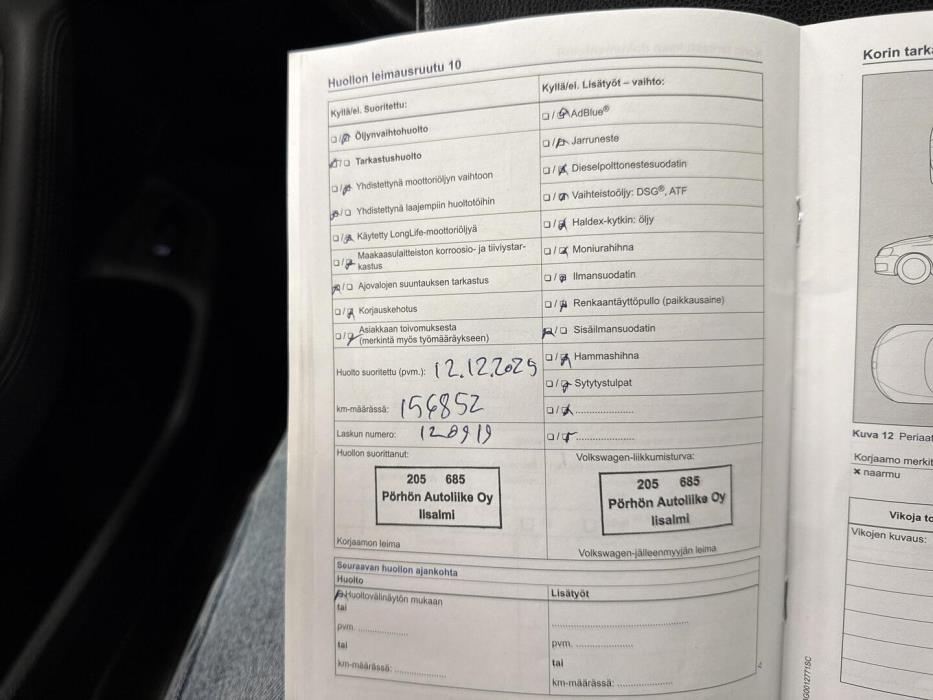 Huollon leimausruutu 10
Kyllä/ei. Suoritettu:
☐/☒ Öljynvaihtohuolto
☒/☐ Tarkastushuolto
☐/☒ Yhdistettynä moottoriöljyn vaihtoon
☒/☐ Yhdistettynä laajempiin huoltotöihin
☐/☒ Käytetty LongLife-moottoriöljyä
☐/☒ Maakaasulaitteiston korroosio- ja tiiviystar-
kastus
☒/☐ Ajovalojen suuntauksen tarkastus
☐/☒ Korjauskehotus
☐/☒ Asiakkaan toivomuksesta
(merkintä myös työmääräykseen)
Huolto suoritettu (pvm.): 12.12.2025
km-määrässä: 156852
Laskun numero: 120919
Huollon suorittanut:
205 685
Pörhön Autoliike Oy
Iisalmi
Korjaamon leima
Kyllä/ei. Lisätyöt – vaihto:
☐/☒ AdBlue®
☐/☒ Jarruneste
☐/☒ Dieselpolttonestesuodatin
☐/☒ Vaihteistoöljy: DSG®, ATF
☐/☒ Haldex-kytkin: öljy
☐/☒ Moniurahihna
☐/☒ Ilmansuodatin
☐/☒ Renkaantäyttöpullo (paikkausaine)
☒/☐ Sisäilmansuodatin
☐/☒ Hammashihna
☐/☒ Sytytystulpat
☐/☒ ....................
☐/☒ ....................
Volkswagen-liikkumisturva:
205 685
Pörhön Autoliike Oy
Iisalmi
Volkswagen-jälleenmyyjän leima
Seuraavan huollon ajankohta
Huolto
☒ Huoltovälinäytön mukaan
tai
pvm. ..................
tai
km-määrässä: ..................
Lisätyöt
..................................................
pvm. ....................
tai
km-määrässä: ....................
Korin tark
Kuva 12 Periaat
Korjaamo merkit
× naarmu
Vikoja to
Vikojen kuvaus: